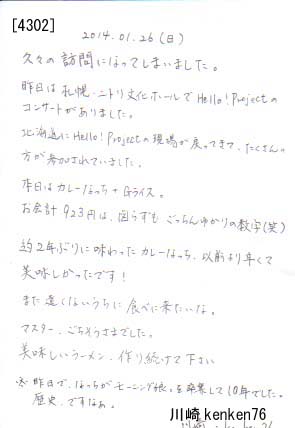 [4302]
2014.01.26(日)
久々の訪問になってしまいました。
昨日は札幌・ニトリ文化ホールでHello!Projectの
コンサートがありました。
北海道にHello!Projectの現場が戻ってきて、たくさんの
方が参加されていました。
本日はカレーなっち+Gライス。
お会計923円は、図らずもごっちんゆかりの数字(笑)
約2年ぶりに味わったカレーなっち、以前より辛くて
美味しかったです!
また遠くないうちに食べに来たいな。
マスター、ごちそうさまでした。
美味しいラーメン、作り続けて下さい
※昨日で、なっちがモーニング娘。を卒業して10年でした。
歴史、ですなぁ。
川崎 kenken76